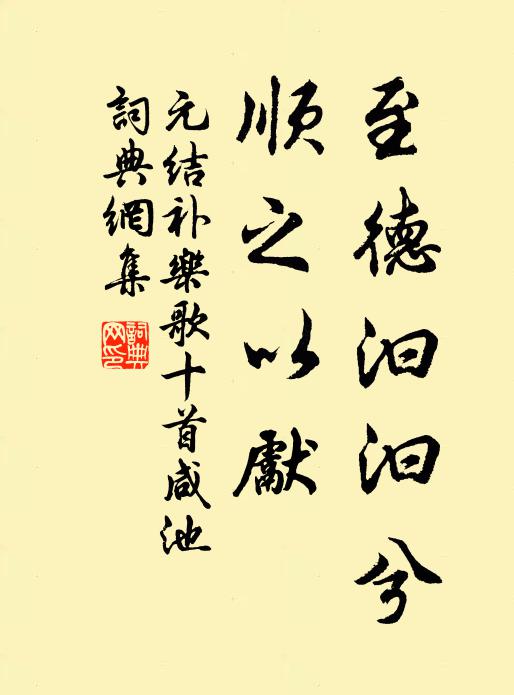 至德汩汩兮
順之以獻
元结补樂歌十首咸池
詞典網集
詞典
网印